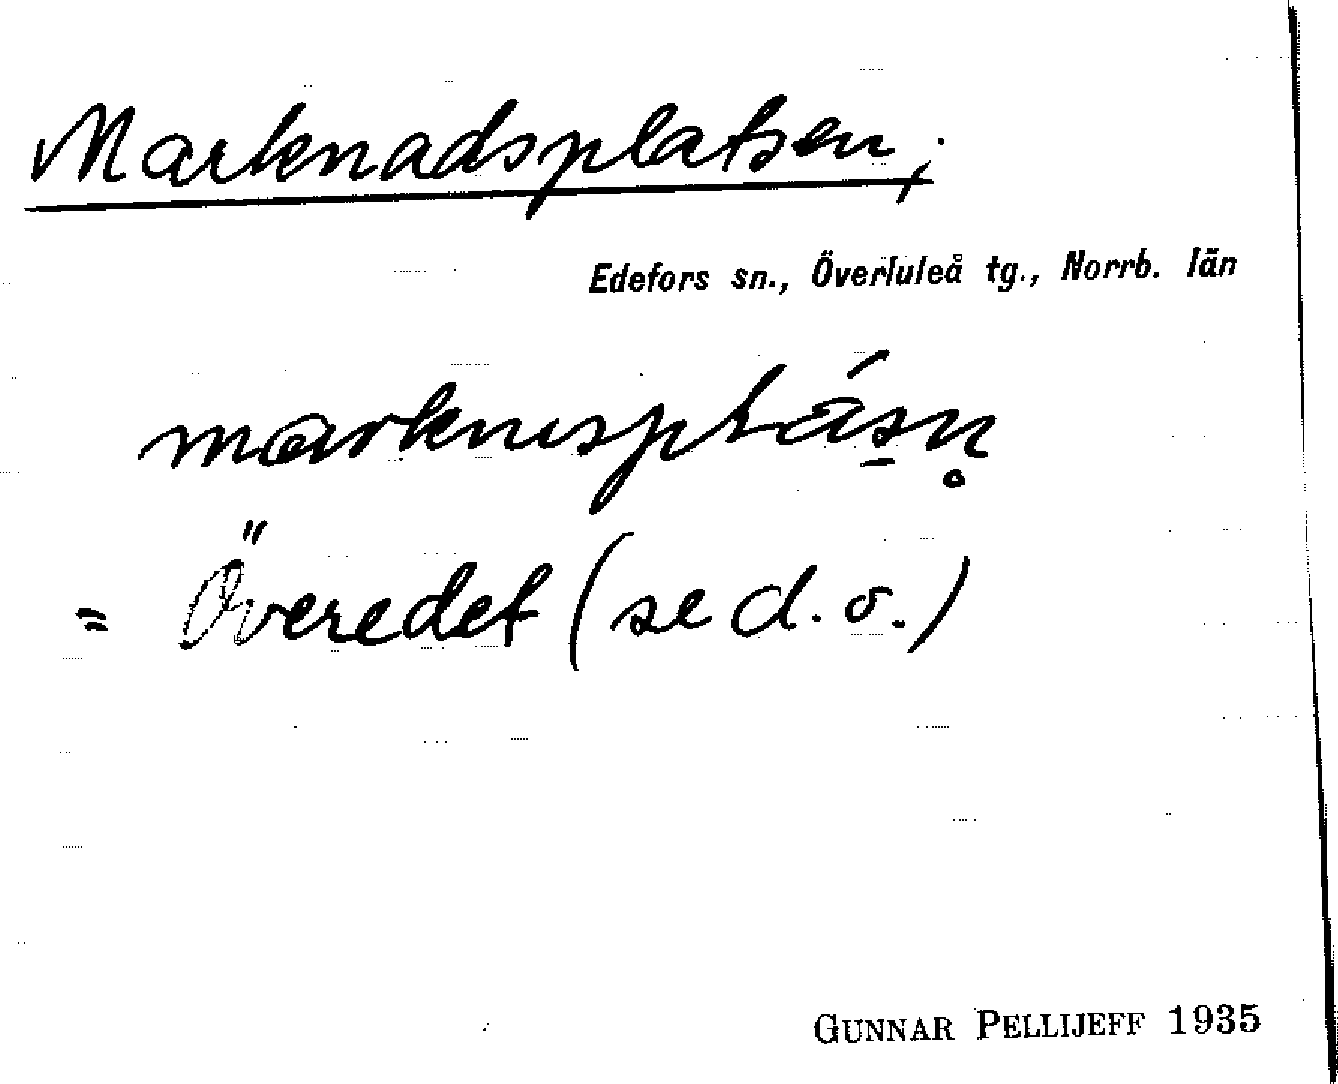 Marknadsplatsen,
Edefors sn., Överluleå tg., Norrb. län
= Överedet (se d. o.)
GUNNAR PELLIJEFF 1935